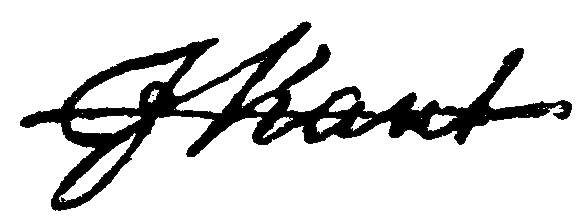 I Kant